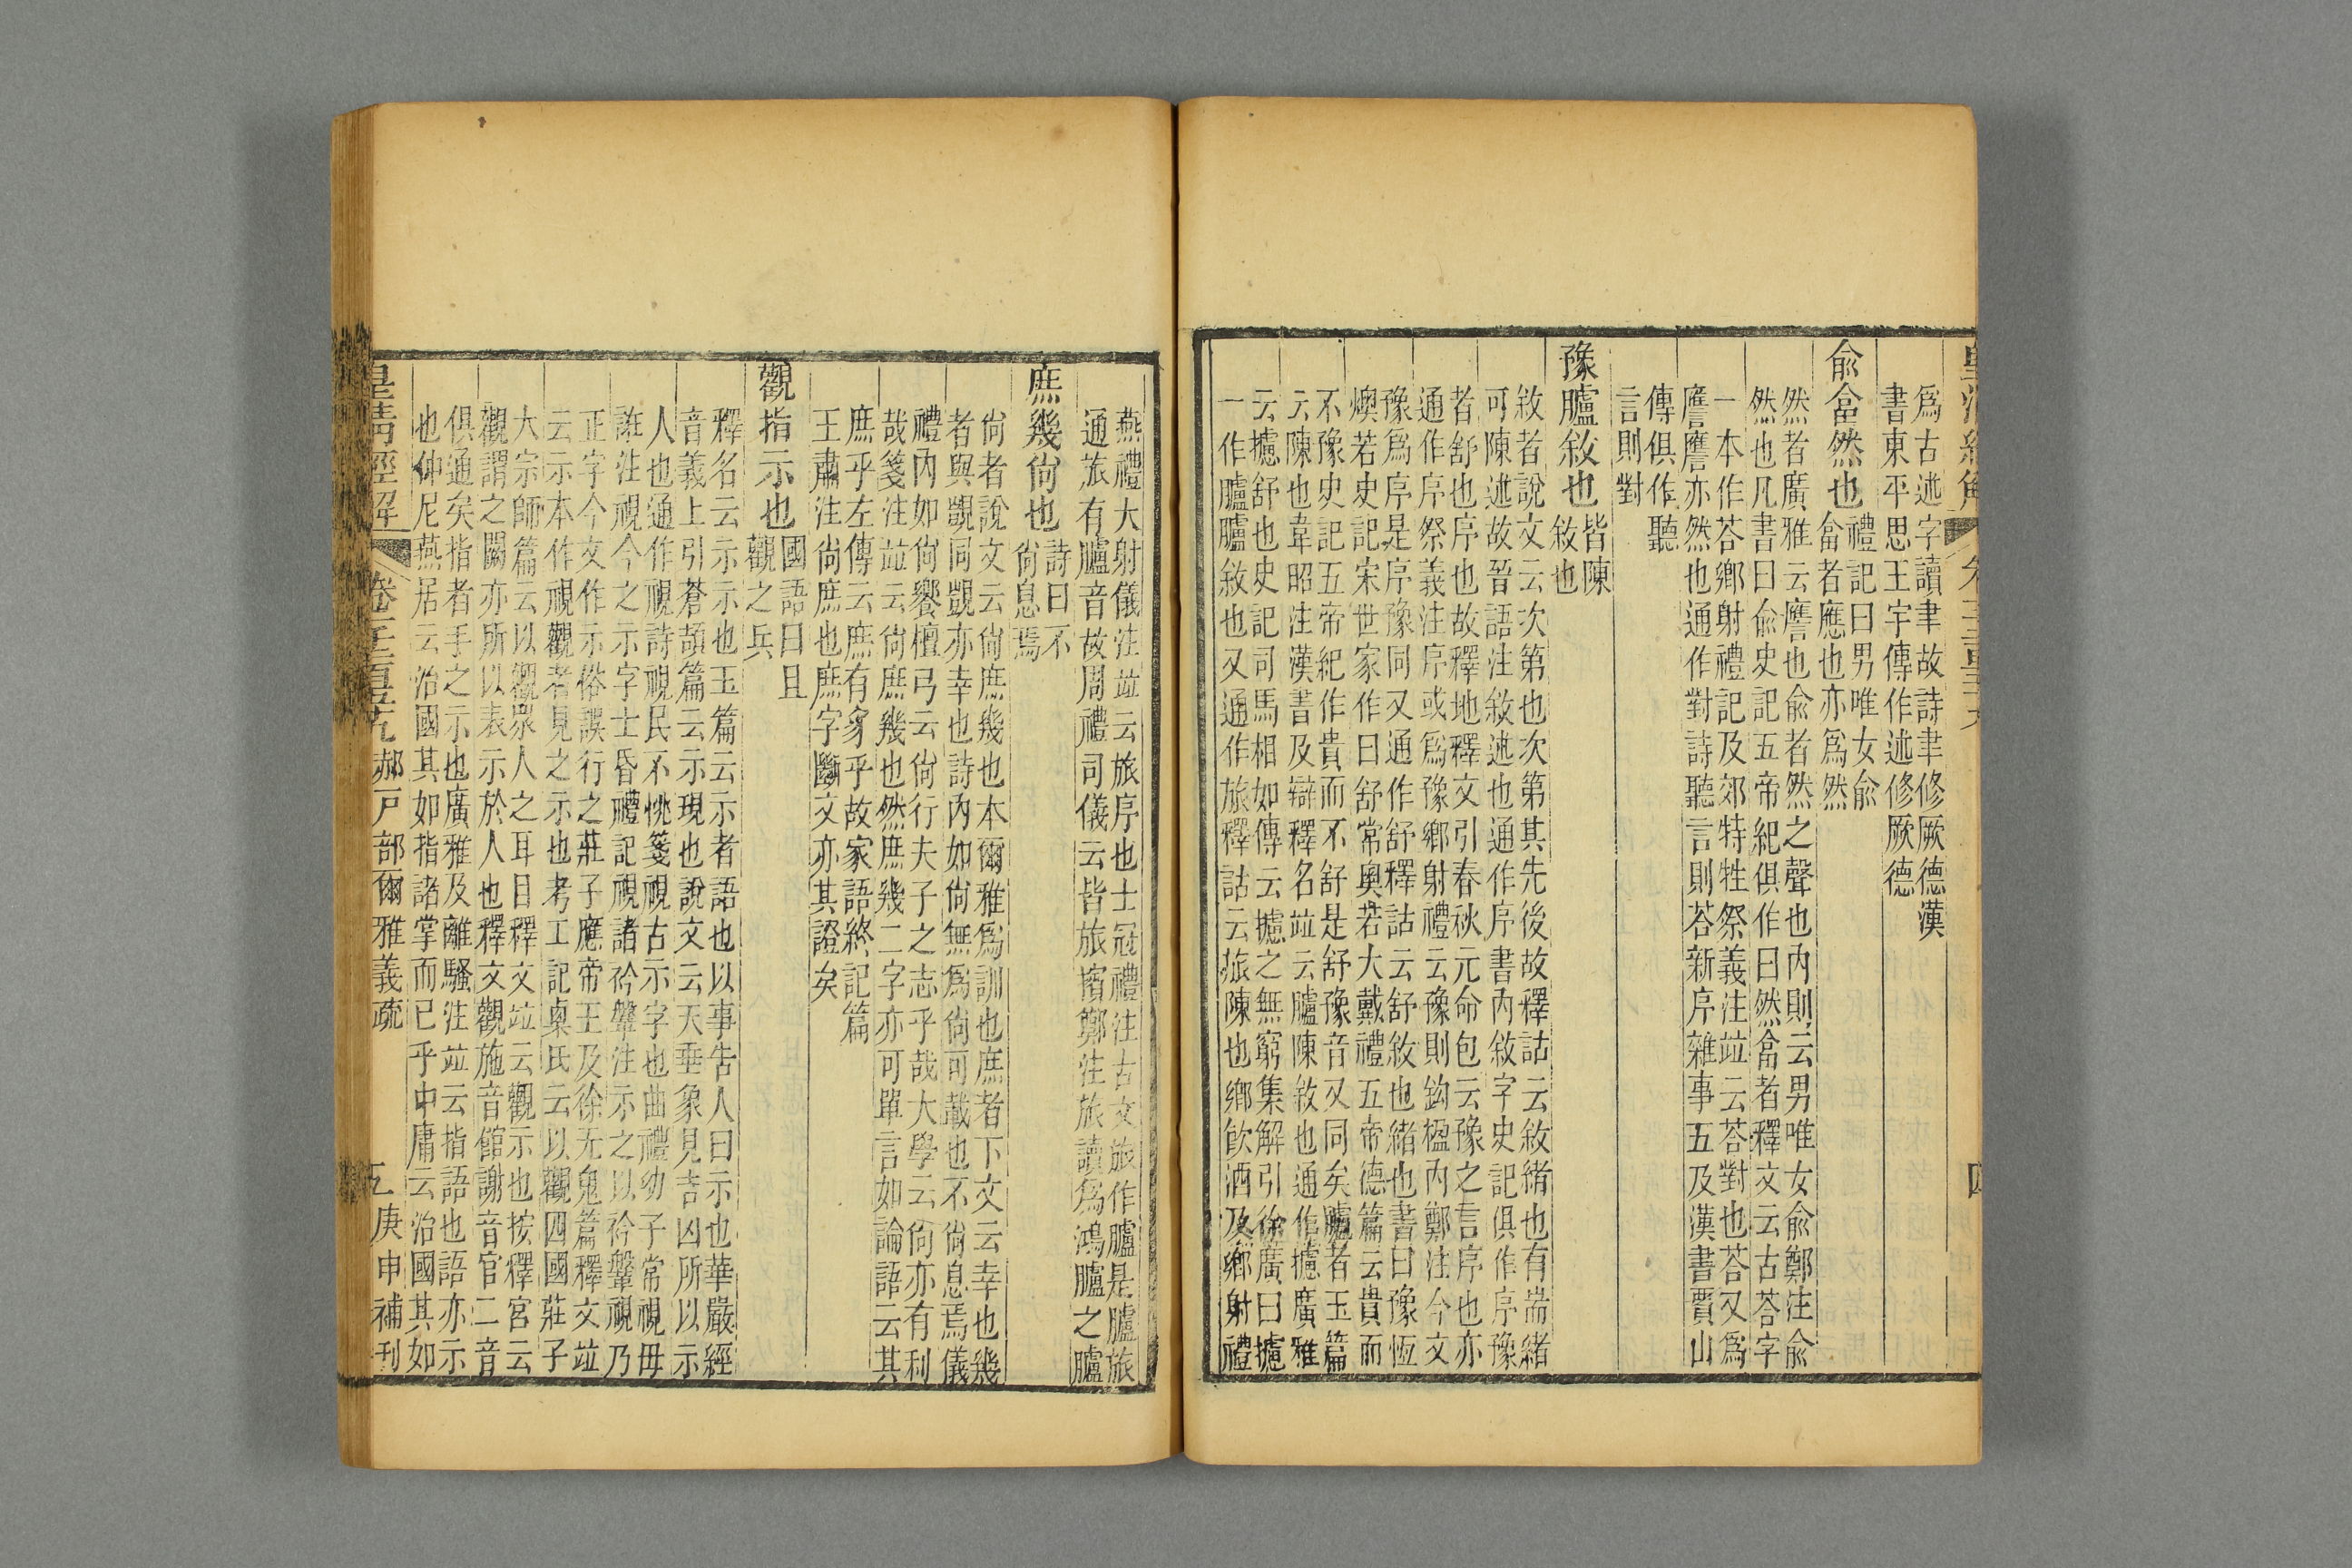 爲古述字讀聿故詩聿修厥德漢
書東平思王宇傳作述修厥德
俞畣然也
禮記曰男唯女俞
畣者應也亦爲然
然者廣雅云譍也俞者然之聲也內則云男唯女俞鄭注俞
然也凡書曰俞史記五帝紀俱作曰然畣者釋文云古荅字
一本作荅鄉射禮記及郊特牲祭義注竝云荅對也荅又爲
譍譍亦然也通作對詩聽言則荅新序雜事五及漢書賈山
傳俱作聽
言則對
豫臚敘也
皆陳
敘也
敘者說文云次第也次第其先後故釋詁云敘緒也有耑緒
可陳述故晉語注敘述也通作序書內敘字史記俱作序豫
者舒也序也故釋地釋文引春秋元命包云豫之言序也亦
通作序祭義注序或爲豫鄉射禮云豫則鉤楹內鄭注今文
豫爲序是序豫同又通作舒釋詁云舒敘也緒也書曰豫恆
燠若史記宋世家作曰舒常奧若大戴禮五帝德篇云貴而
不豫史記五帝紀作貴而不舒是舒豫音又同矣臚者玉篇
云陳也韋昭注漢書及辯釋名竝云臚陳敘也通作攄廣雅
云攄舒也史記司馬相如傳云攄之無窮集解引徐廣曰攄
一作臚臚敘也又通作旅釋詁云旅陳也鄉飲酒及鄉射禮
燕禮大射儀注竝云旅序也士冠禮注古文旅作臚是臚旅
通旅有臚音故周禮司儀云皆旅擯鄭注旅讀爲鴻臚之臚
庶幾尙也
詩曰不
尙息焉
尙者說文云尙庶幾也本爾雅爲訓也庶者下文云幸也幾
者與覬同覬亦幸也詩內如尙無爲尙可載也不尙息焉儀
禮內如尙饗檀弓云尙行夫子之志乎哉大學云尙亦有利
哉箋注竝云尙庶幾也然庶幾二字亦可單言如論語云其
庶乎左傳云庶有豸乎故家語終記篇
王肅注尙庶也庶字斷文亦其證矣
觀指示也
國語曰且
觀之兵
釋名云示示也玉篇云示者語也以事告人曰示也華嚴經
音義上引蒼頡篇云示現也說文云天垂象見吉凶所以示
人也通作視詩視民不恌箋視古示字也曲禮幼子常視毋
誑注視今之示字士昏禮記視諸衿鞶注示之以衿鞶視乃
正字今文作示俗誤行之莊子應帝王及徐无鬼篇釋文竝
云示本作視觀者見之示也考工記㮚氏云以觀四國莊子
大宗師篇云以觀眾人之耳目釋文竝云觀示也按釋宮云
觀謂之闕亦所以表示於人也釋文觀施音館謝音官二音
俱通矣指者手之示也廣雅及離騷注竝云指語也語亦示
也仲尼燕居云治國其如指諸掌而已乎中庸云治國其如
皇淸經解 郝戶部爾雅義疏 五 庚申補刊